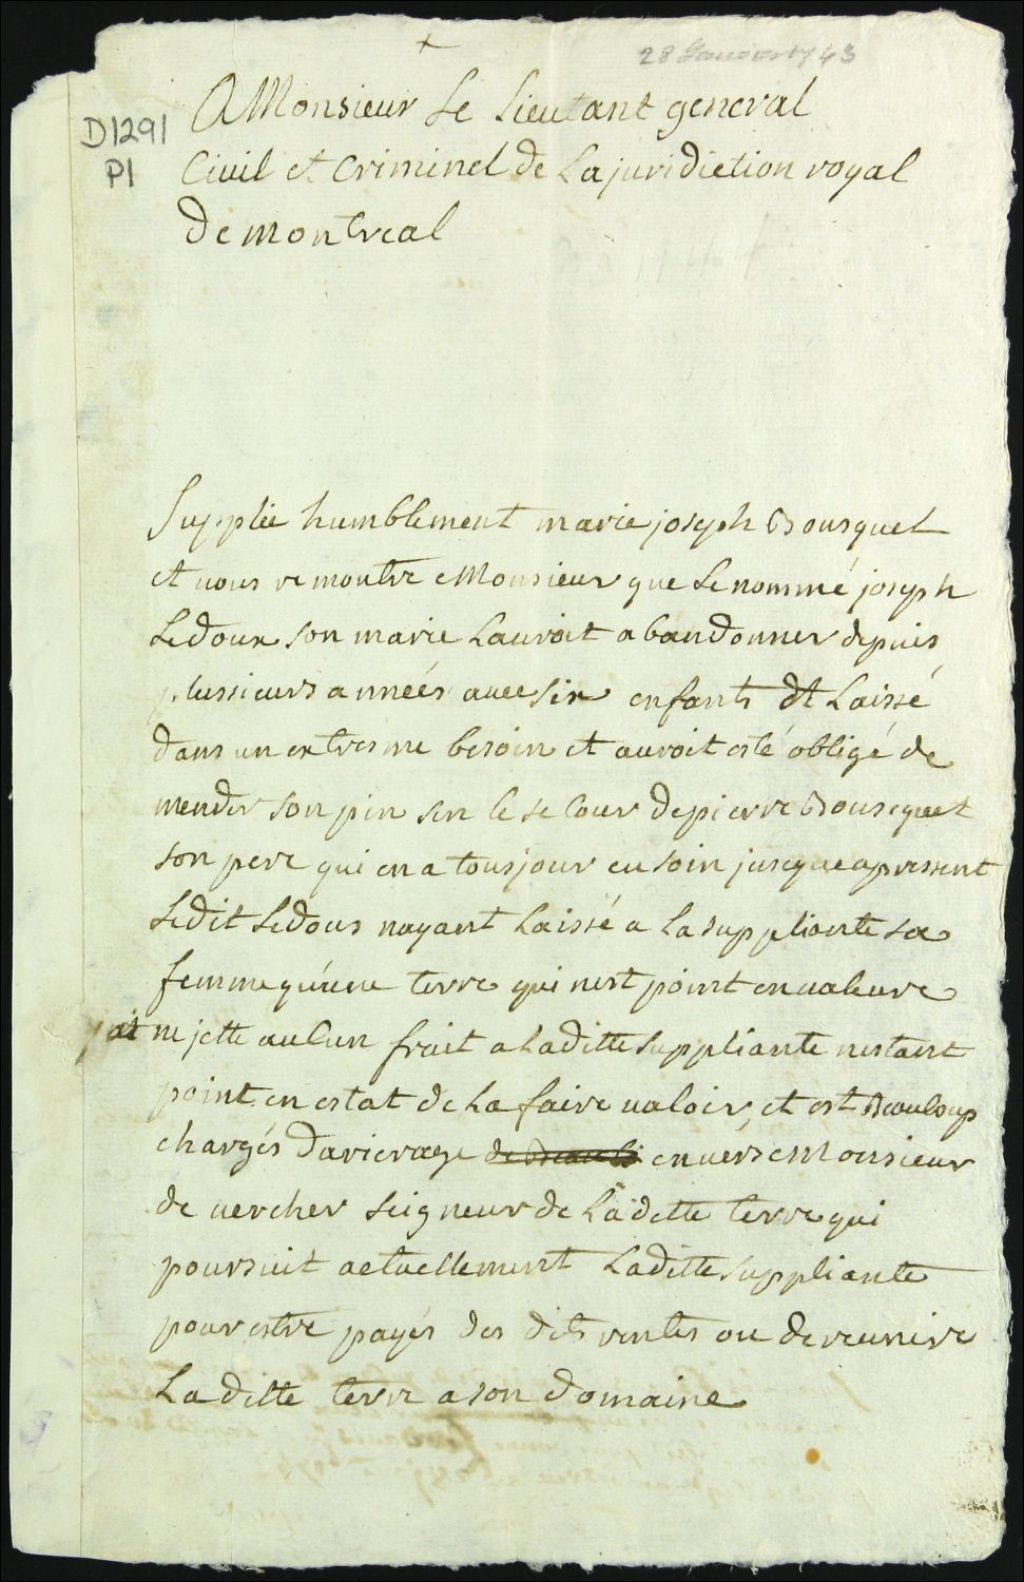 28 Janvier 1743
D1291
P1
A Monsieur Le Lieutant general
Civil et Criminel de La juridiction royal
de montreal
Supplie humblement marie joseph Bousquet
et vous remontre Monsieur que Le nommé joseph
Ledoux son marie Lauroit abandonner depuis
plussieurs anneés avec six enfants et Laissé
dans un extresme besoin et auroit esté obligé de
mender son pin sen le secour de pierre Bousequet
son pere qui en a tousjour eu soin jusqueapressent
Ledit Ledous nayant Laissé a La suppliante sa
femme qu'une terre qui nest point en valeure
ne jette aucun frait a Laditte suppliante nestant
point en estat de La faire valoir, et est Beaucoup
chargés darierage envers Monsieur
de vercher seigneur de Laditte terre qui
poursuit actuellement Laditte suppliante
pour estre payés des dits rentes ou de reunire
Laditte terre a son domaine